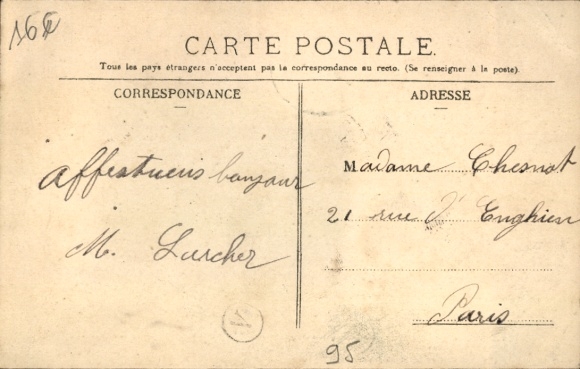 16
CARTE POSTALE.
Tous les pays étrangers n'acceptent pas la correspondance au recto. (Se renseigner à la poste).
CORRESPONDANCE
Affectueux bonjour
M. Lurcher
ADRESSE
Madame Chesnot
21 rue d'Enghien
Paris
95